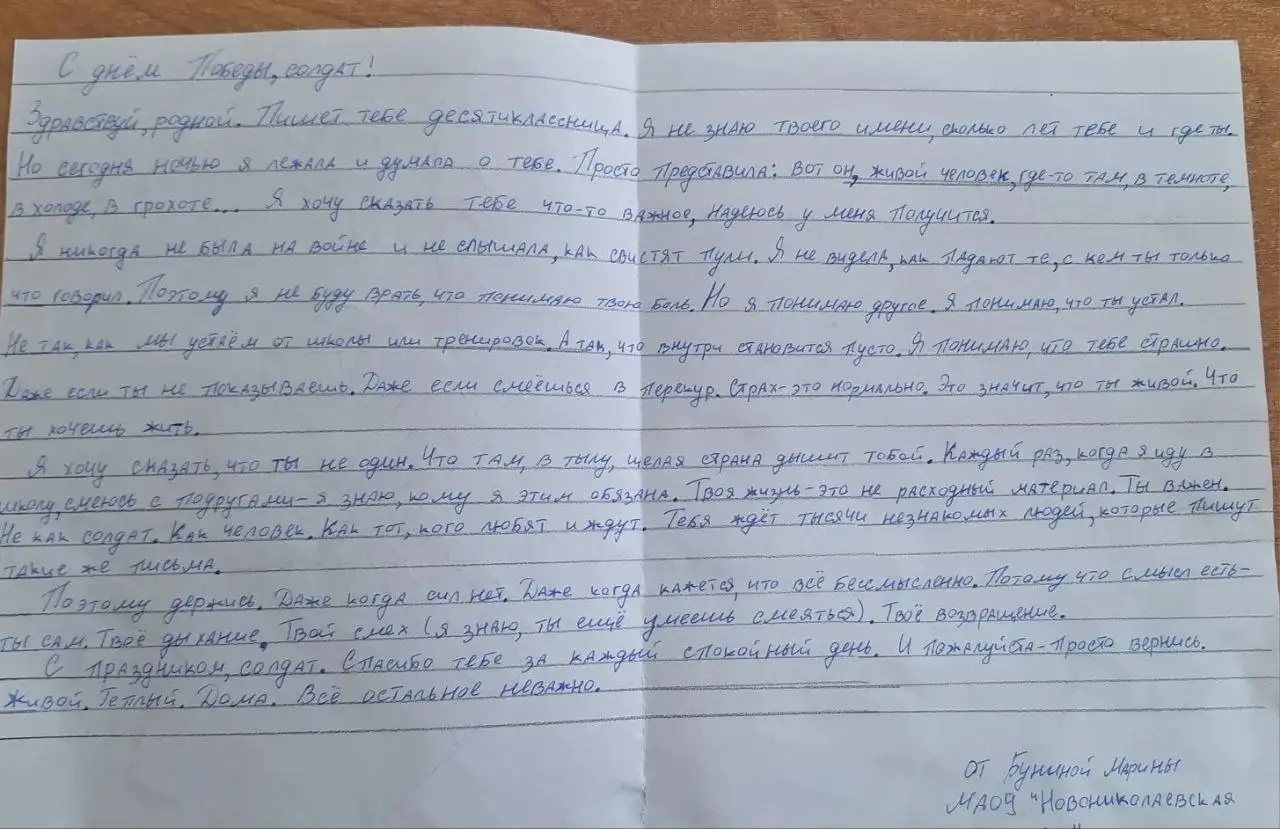 С днём Победы, солдат!
Здравствуй, родной. Пишет тебе десятиклассница. Я не знаю твоего имени, сколько лет тебе и где ты.
Но сегодня ночью я лежала и думала о тебе. Просто представила: вот он, живой человек, где-то там, в темноте,
в холоде, в грохоте... Я хочу сказать тебе что-то важное, надеюсь у меня получится.
Я никогда не была на войне и не слышала, как свистят пули. Я не видела, как падают те, с кем ты только
что говорил. Поэтому я не буду врать, что понимаю твою боль. Но я понимаю другое. Я понимаю, что ты устал.
Не так, как мы устаём от школы или тренировок. А так, что внутри становится пусто. Я понимаю, что тебе страшно.
Даже если ты не показываешь. Даже если смеёшься в перекур. Страх-это нормально. Это значит, что ты живой. Что
ты хочешь жить.
Я хочу сказать, что ты не один. Что там, в тылу, целая страна дышит тобой. Каждый раз, когда я иду в
школу, смеюсь с подругами-я знаю, кому я этим обязана. Твоя жизнь-это не расходный материал. Ты важен.
Не как солдат. Как человек. Как тот, кого любят и ждут. Тебя ждёт тысячи незнакомых людей, которые пишут
такие же письма.
Поэтому держись. Даже когда сил нет. Даже когда кажется, что всё бессмысленно. Потому что смысл есть-
ты сам. Твоё дыхание. Твой смех (я знаю, ты ещё умеешь смеяться). Твоё возвращение.
С праздником, солдат. Спасибо тебе за каждый спокойный день. И пожалуйста-просто вернись.
Живой. Теплый. Дома. Всё остальное неважно.
от Буниной Марины
МАОУ "Новониколаевская